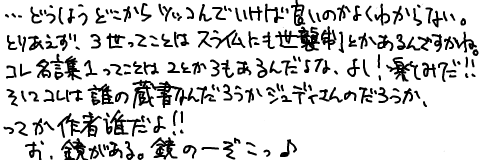 …どうしよう どこから ツッコんでいけば良いのかよくわからない。
とりあえず、3世ってことは スライムにも世襲制とかあるんですかね。
コレ名言集1ってことは 2とか3もあるんだよな、よし!楽しみだ!!
そしてコレは誰の蔵書なんだろうか ジュディさんのだろうか、
ってか作者誰だよ!!
お、鏡がある。鏡の一ぞこっ♪